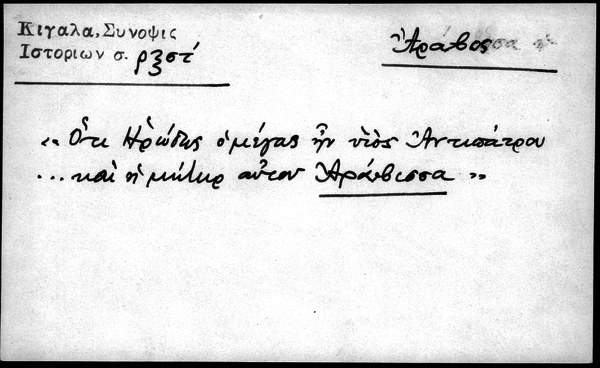 Κιγαλα, Συνοψις
Ιστοριων σ. ρξστʹ
Ἀράβισσα ἡ
« Ὅτι Ἡρώδης ὁ μέγας ἦν υἱὸς Ἀντιπάτρου
... καὶ ἡ μήτηρ αὐτοῦ Ἀράβισσα »